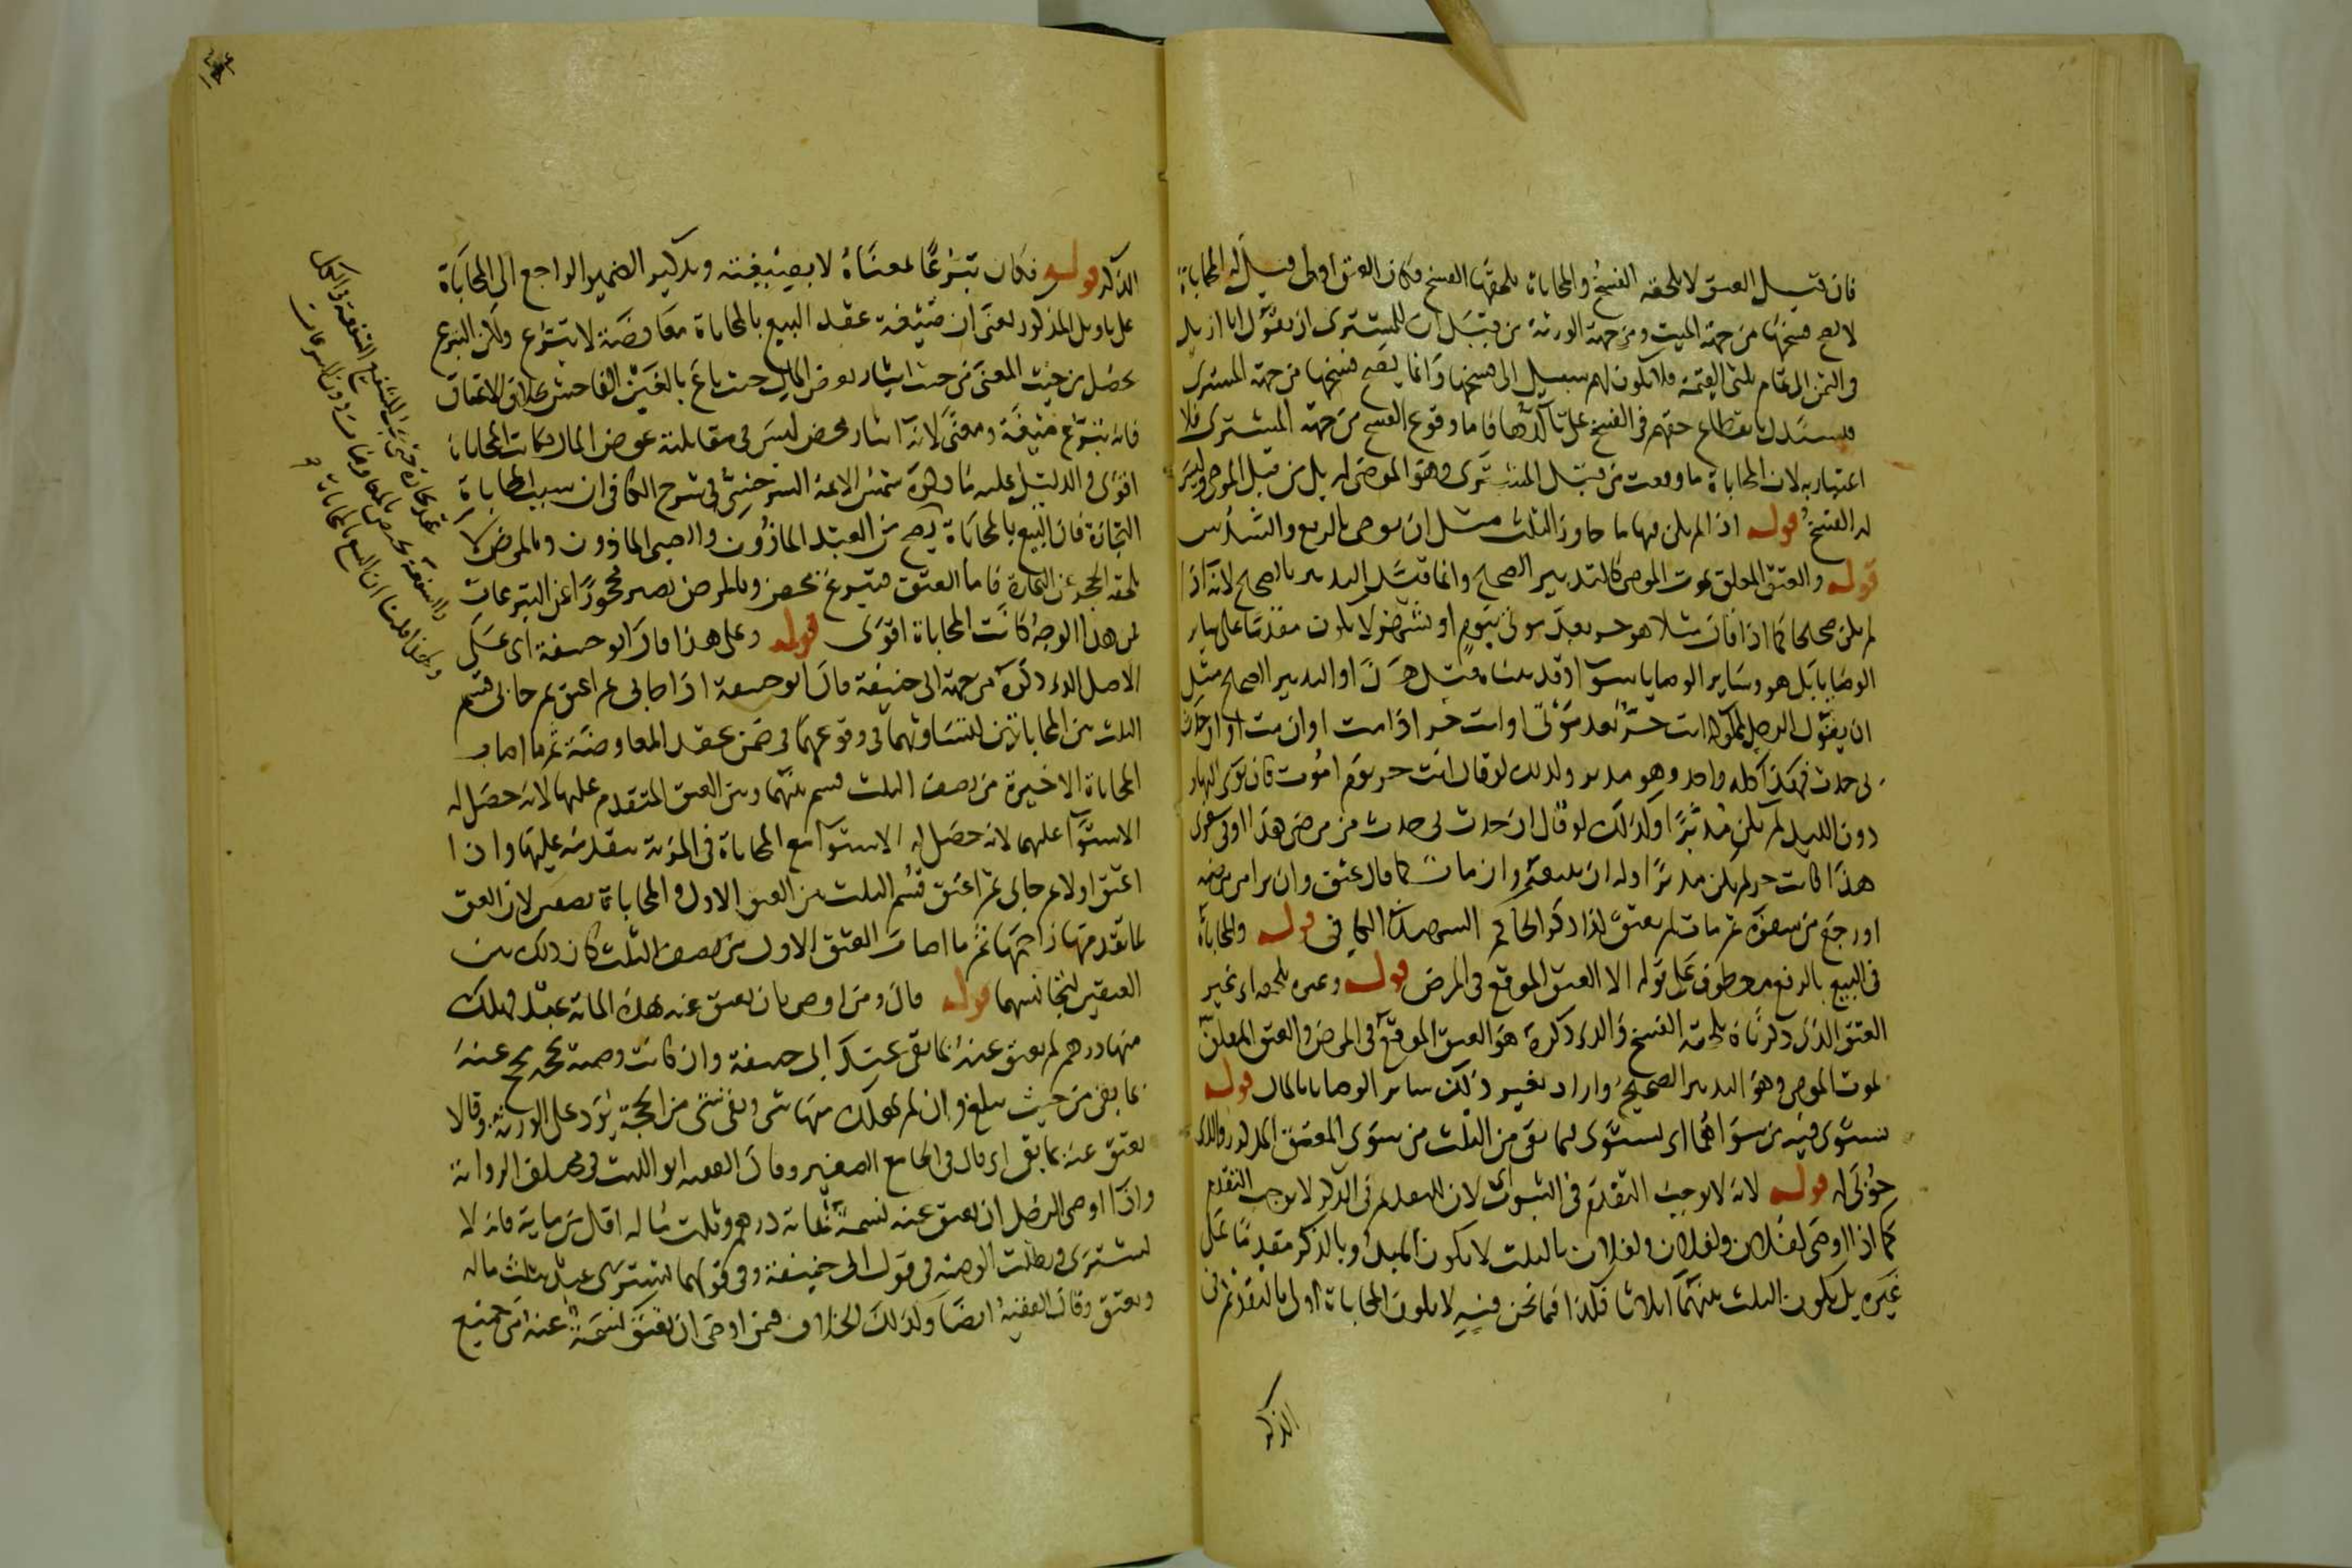 فان قيل العتق لا يلحقه الفسخ والمحاباة يلحقها الفسخ فكان العتق اولى قيل له المحاباة
لا يصح فسخها من جهة الميت ومن جهة الورثة من قبل ان للمشتري ان يقول انا ازيد
في الثمن الى تمام ثلثي القيمة فلا يكون لهم سبيل الى فسخها وانما يصح فسخها من جهة المشتري
فيستدل بانقطاع حقهم في الفسخ على تأكدها فاما وقوع الفسخ من جهة المشتري فلا
اعتبار به لان المحاباة ما وقعت من قبل المشتري وهو الموصى له بل من قبل الموصي وليس
له الفسخ قوله اذا لم يكن فيها ما جاوز الثلث مثل ان يوصي بالربع والسدس
قوله والعتق المعلق بموت الموصي كالتدبير الصحيح وانما قيد التدبير بالصحيح لانه اذا
لم يكن صحيحا كما اذا قال مثلا هو حر بعد موتي بيوم او بشهر لا يكون مقدما على ساير
الوصايا بل هو وساير الوصايا سوا وقد بيناه قبل هذا والتدبير الصحيح مثل
ان يقول الرجل لمملوكه انت حر بعد موتي او انت حر اذا مت او ان مت او ان حدث
بي حدث فهذا كله واحد وهو مدبر ولذلك لو قال انت حر يوم اموت فان نوى النهار
دون الليل لم يكن مدبرا وكذلك لو قال ان حدث لي حدث من مرضي هذا او في سفري
هذا فانت حر لم يكن مدبرا وله ان يبيعه وان مات كما قال عتق وان برا من مرضه
او رجع من سفره ثم مات لم يعتق لذا ذكر الحاكم الشهيد في الكافي قوله والمحاباة
في البيع بالرفع معطوف على قوله الا العتق الموقع في المرض قوله وغيره يلحقه اي غير
العتق الذي ذكرناه يلحقه الفسخ والذي ذكره هو العتق الموقع في المرض والعتق المعلق
بموت الموصي وهو التدبير الصحيح واراد بغير ذلك ساير الوصايا بالمال قوله
يستوي فيه من سواهما اي يستوي فيما بقي من الثلث من سوى المعتق المذكور والذي
حوبي له قوله لانه لا يوجب التقدم في الثبوت لان التقديم في الذكر لا يوجب التقدم
كما اذا اوصى لفلان ولفلان ولفلان بالثلث لا يكون المبدو بالذكر مقدما على
غيره بل يكون الثلث بينهما اثلاثا فكذا فيما نحن فيه لا يكون المحاباة اولى بالتقديم في
الذكر
الذكر قوله فكان تبرعا بمعناه لا بصيغته وتذكير الضمير الراجع الى المحاباة
على تاويل المذكور يعني ان صيغة عقد البيع بالمحاباة معاوضة لا تبرع ولكن التبرع
يحصل من حيث المعنى من حيث ايثار بعض المال حيث باع بالغبن الفاحش بخلاف الاعتاق
فانه تبرع صيغة ومعنى لانه ايثار محض ليس في مقابلته عوض المال فكانت المحاباة
اقوى والدليل عليه ما ذكره شمس الايمة السرخسي في شرح الكافي ان سبب المحاباة
التجارة فان البيع بالمحاباة يصح من العبد الماذون والصبي الماذون وبالمرض لا
يلحقه الحجر عن التجارة فاما العتق فتبرع محض وبالمرض يصير محجورا عن التبرعات
فمن هذا الوجه كانت المحاباة اقوى قوله وعلى هذا قال ابو حنيفة اي على
الاصل الذي ذكره من جهة ابي حنيفة قال ابو حنيفة اذا حابى ثم اعتق ثم حابى قسم
الثلث بين المحاباتين لتساويهما في وقوعهما في ضمن عقد المعاوضة ثم ما اصاب
المحاباة الاخيرة من نصف الثلث قسم بينهما وبين العتق المتقدم عليها لانه حصل له
الاستوا عليهما لانه حصل له الاستوا مع المحاباة في المزية بتقدمه عليها وان
اعتق اولا ثم حابى ثم اعتق قسم الثلث بين العتق الاول والمحاباة نصفين لان العتق
لما تقدمها زاحمها ثم ما اصاب العتق الاول من نصف الثلث كان ذلك بين
العتقين لتجانسهما قوله قال ومن اوصى بان يعتق عنه بهذه الماية عبد فهلك
منها درهم لم يعتق عنه بما بقي عند ابي حنيفة وان كانت وصية بحجة يحج عنه
بما بقي من حيث يبلغ وان لم يهلك منها شي وبقي شي من الحجة يرد على الورثة وقالا
يعتق عنه بما بقي اي قال في الجامع الصغير وقال الفقيه ابو الليث في مختلف الرواية
واذا اوصى الرجل ان يعتق عنه نسمة بماية درهم وثلث ماله اقل من ماية فانه لا
يشترى وبطلت الوصية في قول ابي حنيفة وفي قولهما يشترى عبد بثلث ماله
ويعتق وقال الفقيه ايضا وكذلك الخلاف فيمن اوصى ان يعتق نسمة عنه من جميع